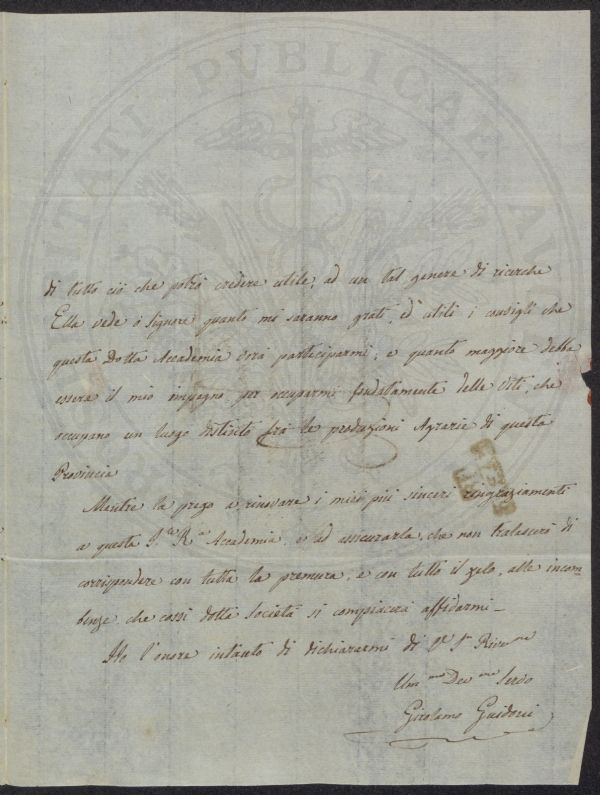 PROSPERITATI PVBLICAE AVGENDAE
di tutto ciò che potrò credere utile, ad un tal genere di ricerche
Ella vede o Signore quanto mi saranno grati, ed utili i consigli che
questa Dotta Accademia vorà participarmi, e quanto maggiore debba
essere il mio impegno, per occuparmi fondatamente delle Viti, che
occupano un luogo distinto frà le produzioni Agrarie di questa
Provincia
Mentre la prego a rinovare i miei più sinceri ringraziamenti
a questa I.le R.a Accademia, e ad assicurarla, che non tralascerò di
corrispondere con tutta la premura, e con tutto il zelo, alle incom
benze, che cossì dotta Società si compiacerà affidarmi_
Ho l'onore intanto di dichiararmi di V. S.
Um.mo Dev.mo Servo
Girolamo